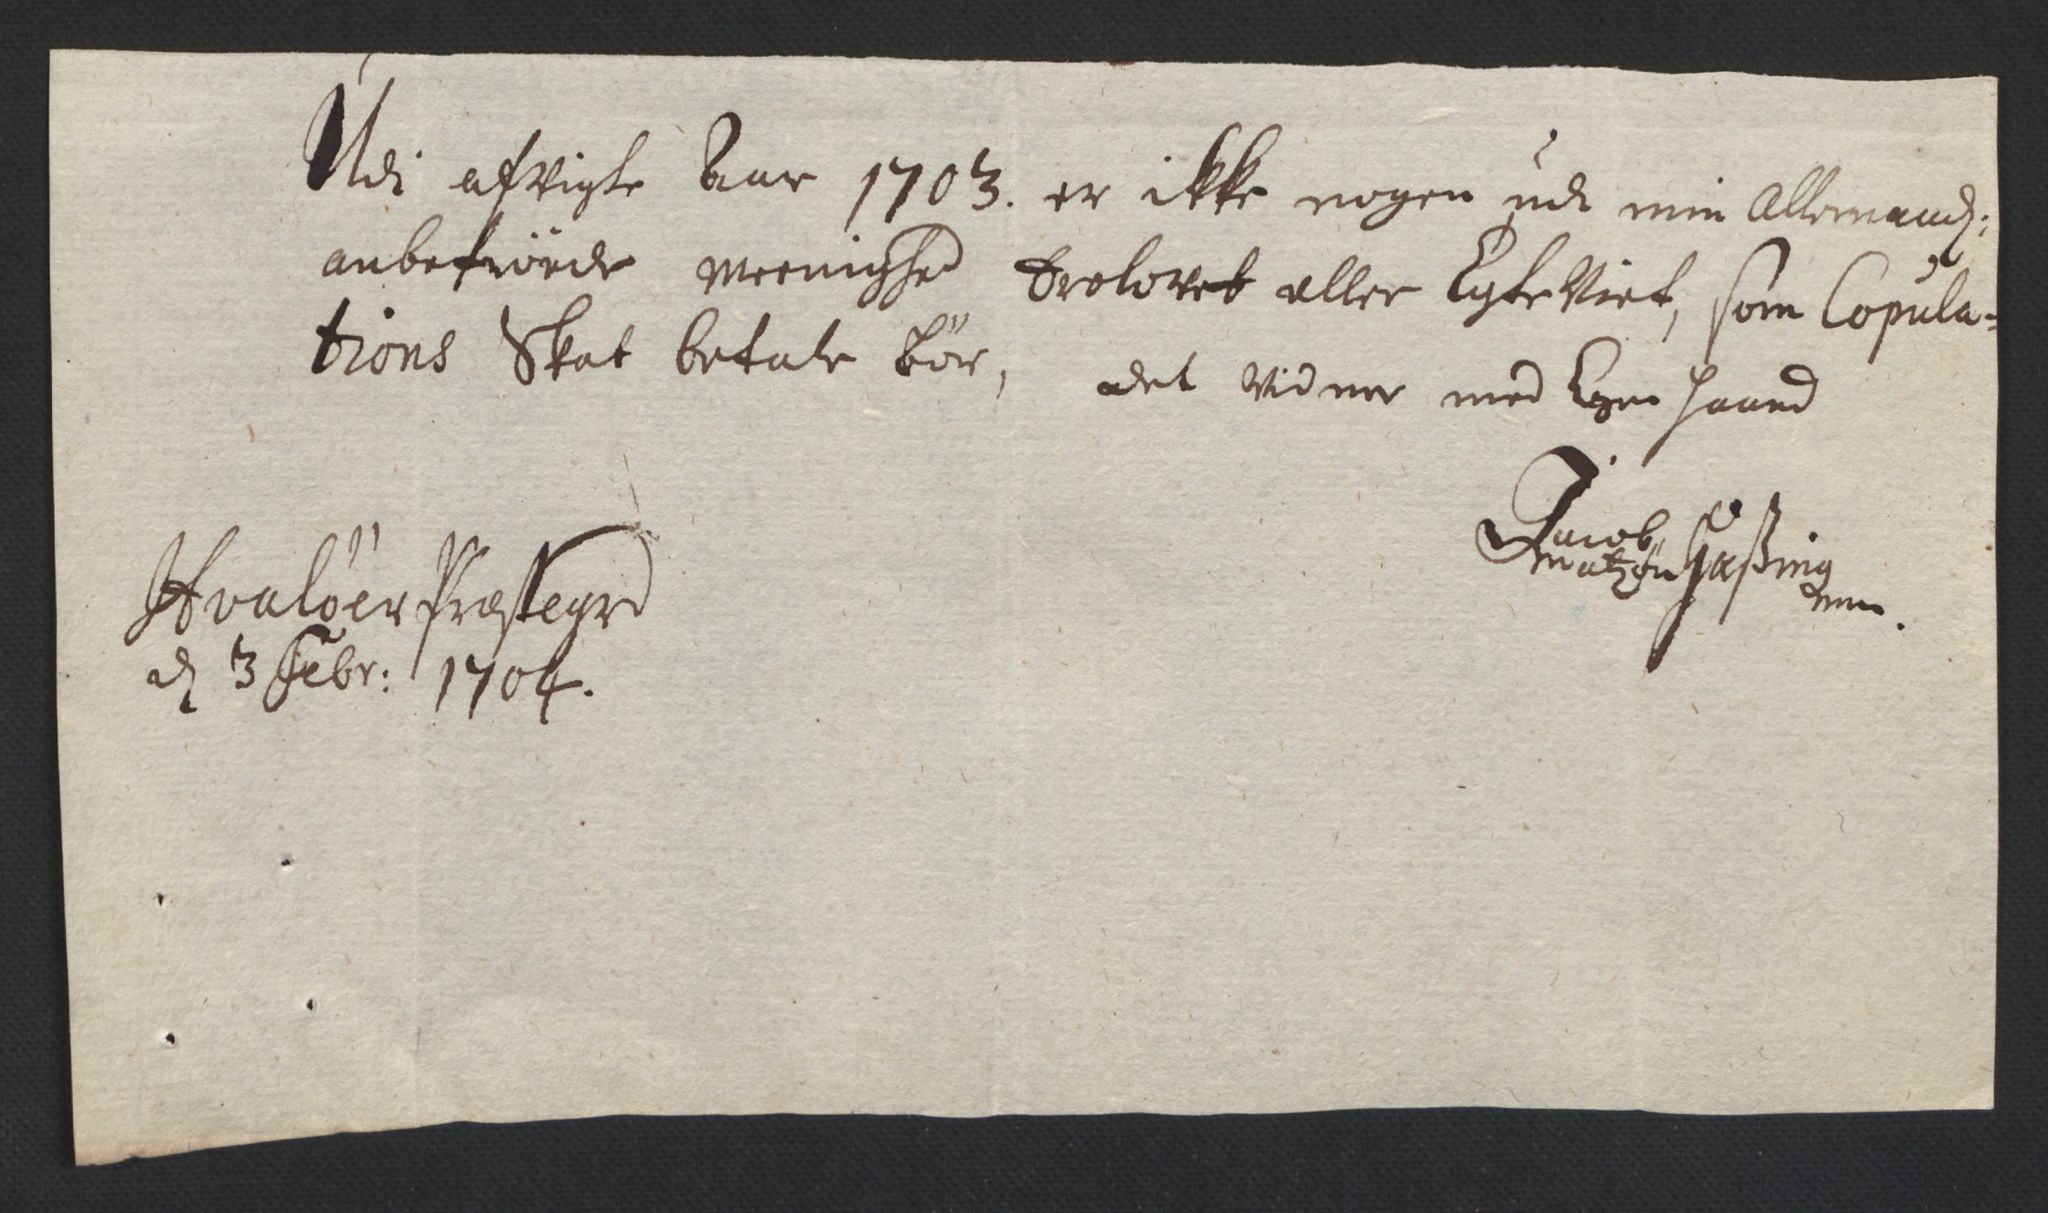 Udi afvigte Aar 1703. er ikke nogen udi min Allernaad:
anbetroede Meenighed trolovet eller EgteViet, som Copula-
tions Skat betale bör, det vidner med Egen Haand
Jacob
Matzön Haßing
mm.
Hvalöer Præstegrd
d 3 Febr: 1704.